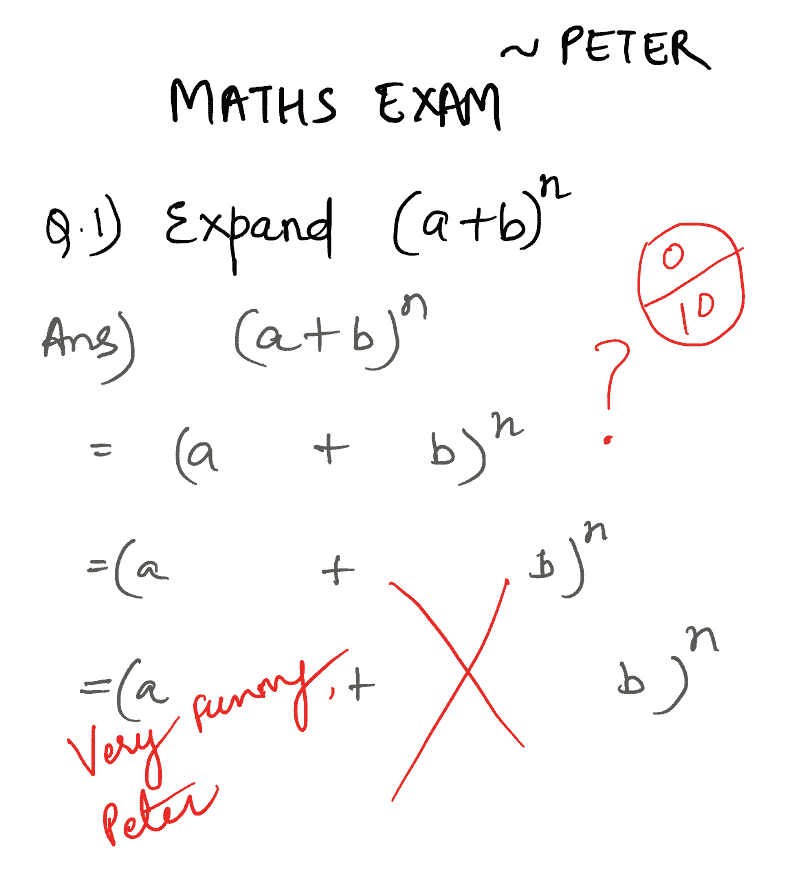 ~ PETER
MATHS EXAM
Q.1) Expand (a+b)^n
0/10
Ans) (a+b)^n
?
= (a + b)^n
=(a + b)^n
=(a + b)^n
Very funny,
Peter